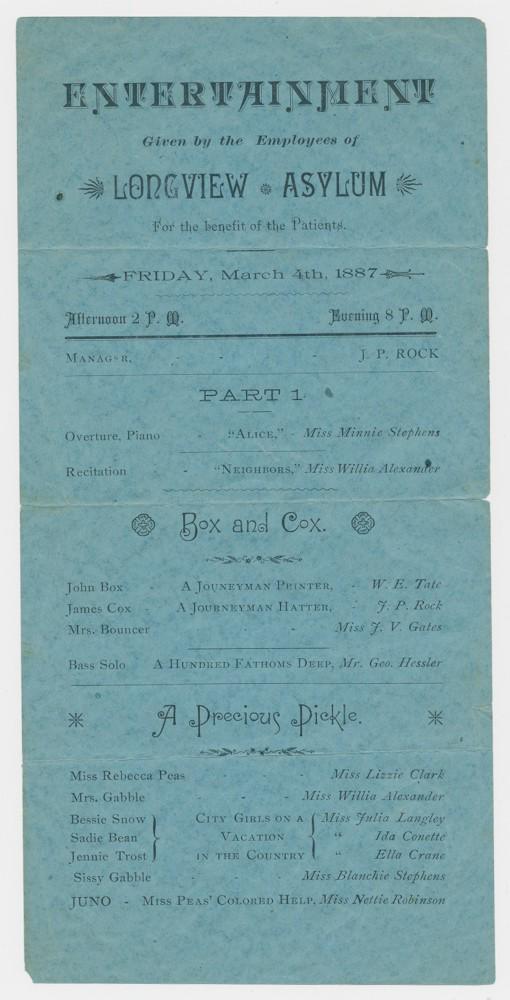 ENTERTAINMENT
Given by the Employees of
LONGVIEW ASYLUM
For the benefit of the Patients.
FRIDAY, March 4th, 1887
Afternoon 2 P. M. Evening 8 P. M.
MANAGER, - - - J. P. ROCK
PART 1
Overture, Piano - "ALICE," - Miss Minnie Stephens
Recitation - "NEIGHBORS," Miss Willia Alexander
Box and Cox.
John Box - A JOUNEYMAN PRINTER, - W. E. Tate
James Cox - A JOURNEYMAN HATTER, - J. P. Rock
Mrs. Bouncer - - Miss J. V. Gates
Bass Solo A HUNDRED FATHOMS DEEP, Mr. Geo. Hessler
A Precious Pickle.
Miss Rebecca Peas - - - Miss Lizzie Clark
Mrs. Gabble - - - Miss Willia Alexander
Bessie Snow CITY GIRLS ON A Miss Julia Langley
Sadie Bean VACATION " Ida Conette
Jennie Trost IN THE COUNTRY " Ella Crane
Sissy Gabble - - - Miss Blanchie Stephens
JUNO - MISS PEAS' COLORED HELP, Miss Nettie Robinson